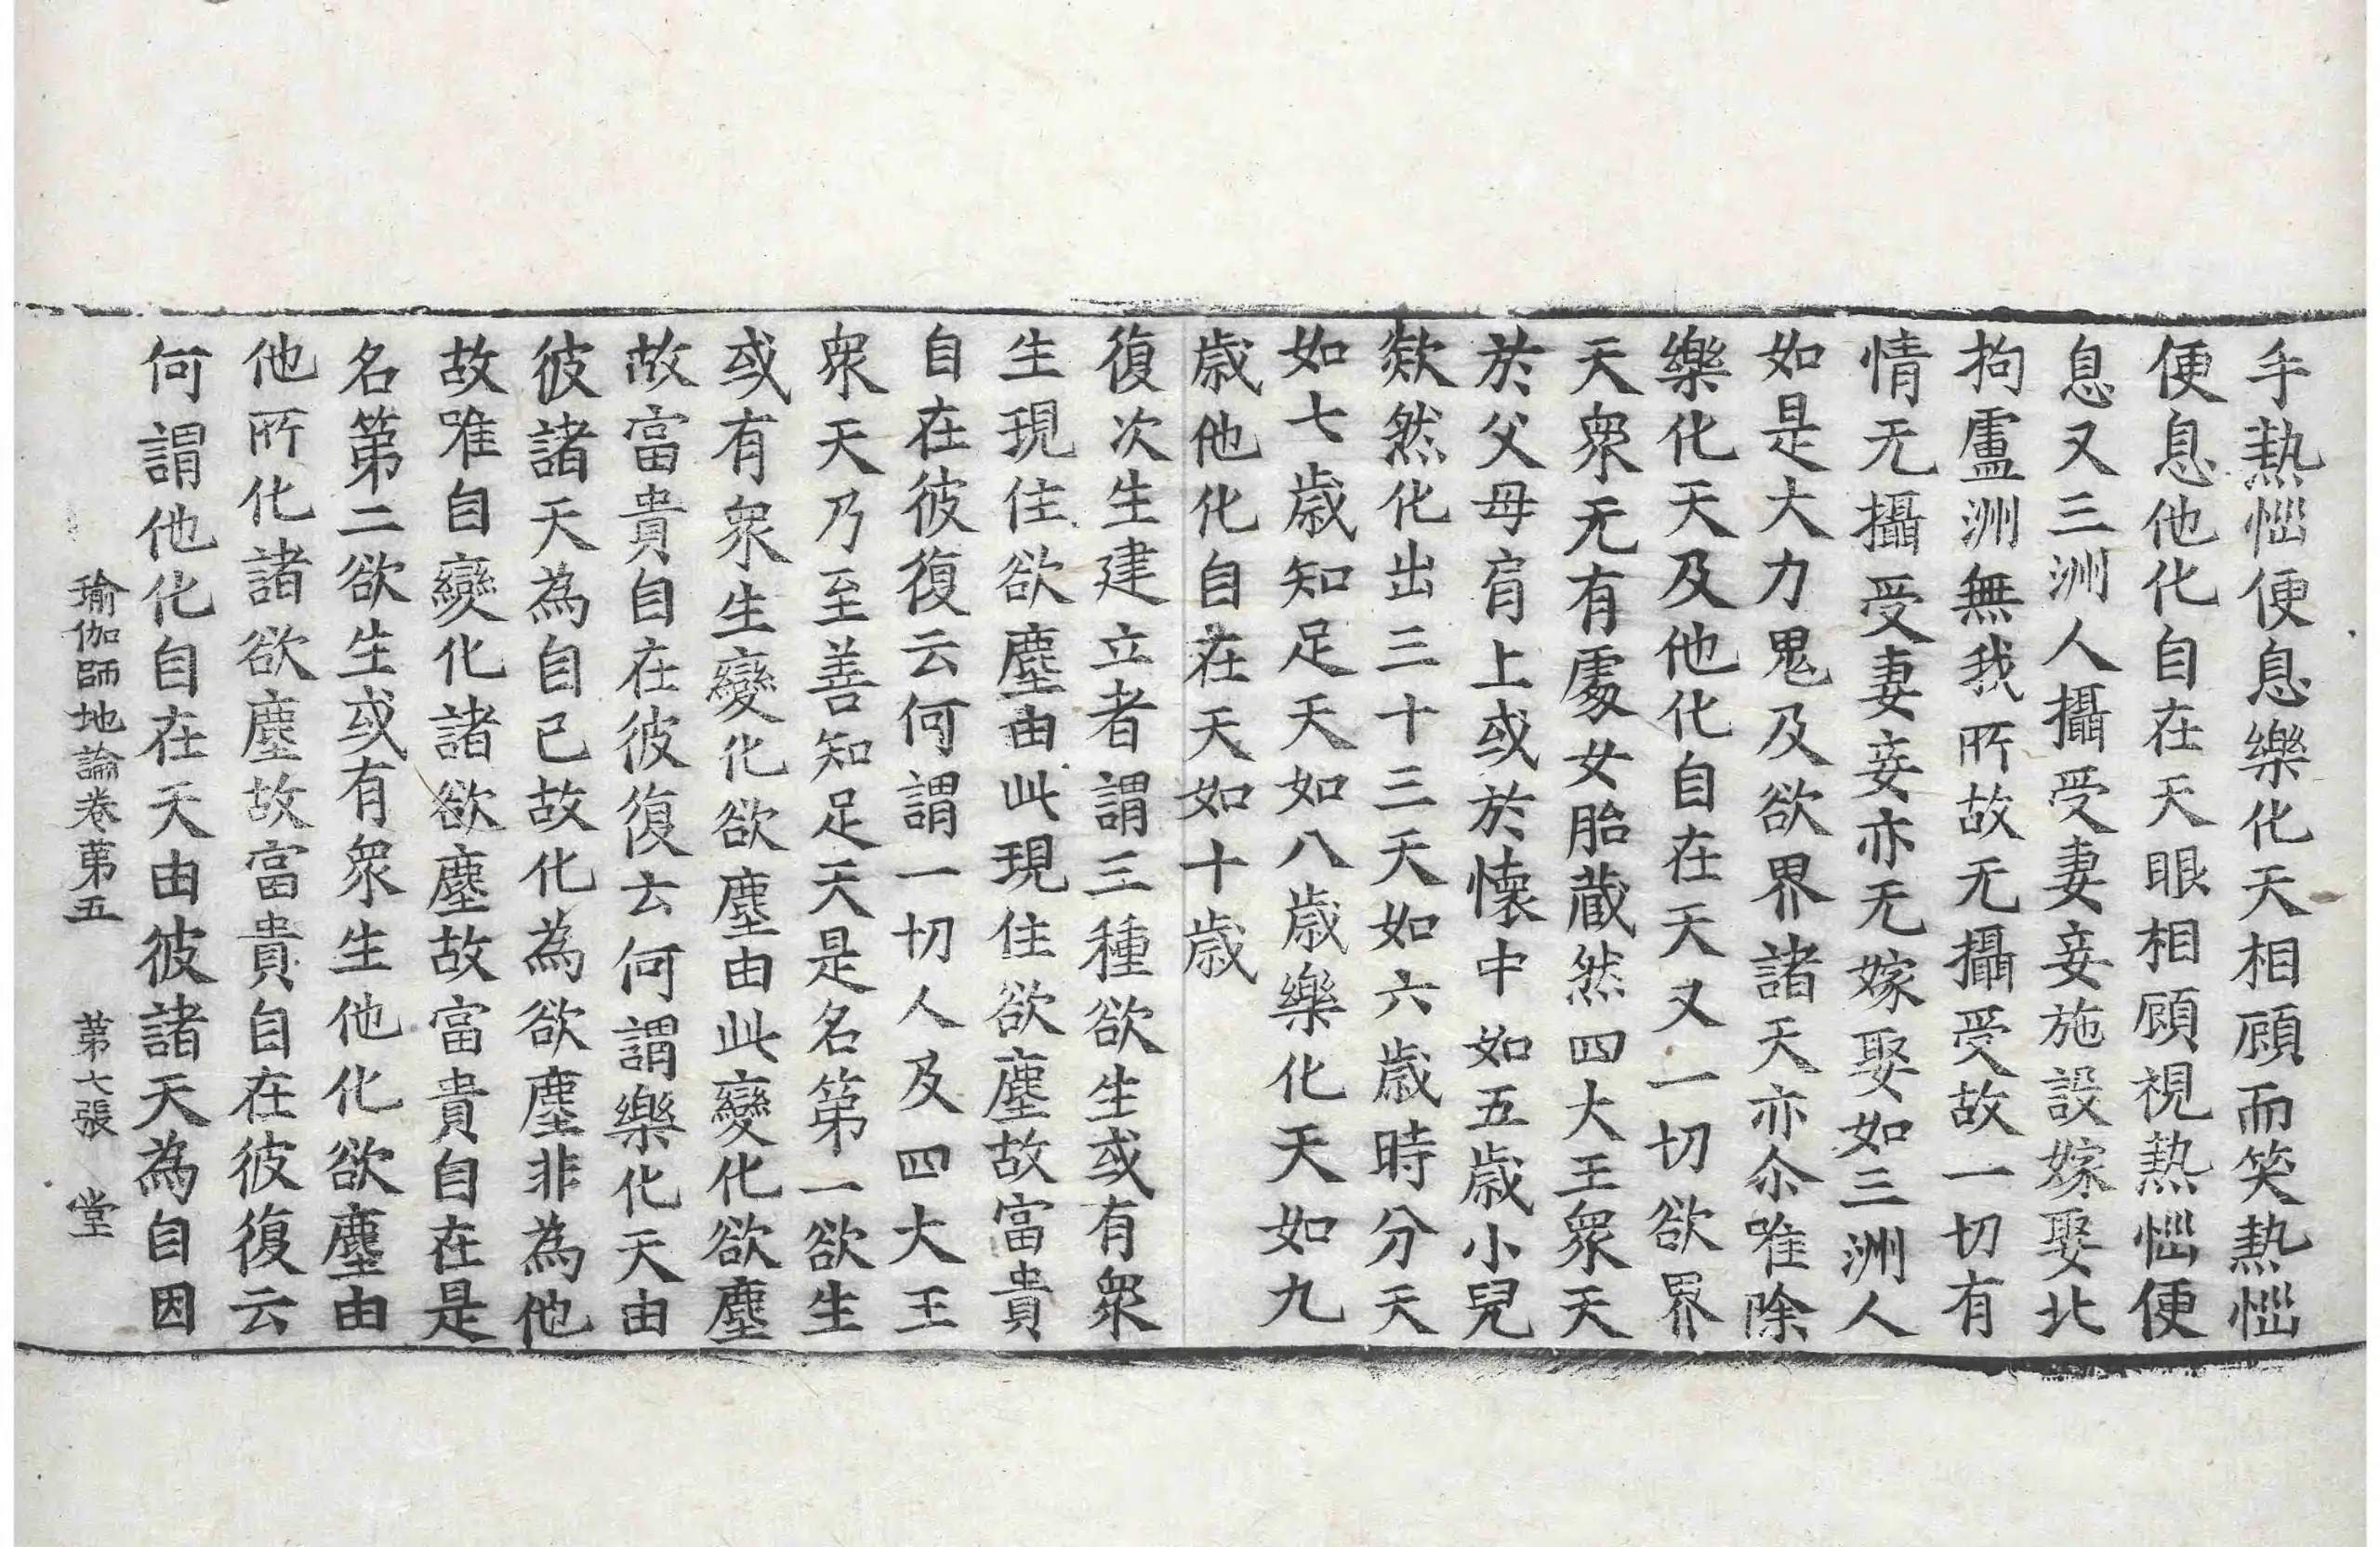 手熱惱便息樂化天相顧而笑熱惱
便息他化自在天眼相顧視熱惱便
息又三洲人攝受妻妾施設嫁娶北
拘盧洲無我所故无攝受故一切有
情无攝受妻妾亦无嫁娶如三洲人
如是大力鬼及欲界諸天亦尒唯除
樂化天及他化自在天又一切欲界
天衆无有處女胎藏然四大王衆天
於父母肩上或於懷中如五歳小兒
欻然化出三十三天如六歳時分天
如七歳知足天如八歳樂化天如九
歳他化自在天如十歳
復次生建立者謂三種欲生或有衆
生現住欲塵由此現住欲塵故富貴
自在彼復云何謂一切人及四大王
衆天乃至善知足天是名第一欲生
或有衆生變化欲塵由此變化欲塵
故富貴自在彼復云何謂樂化天由
彼諸天為自己故化為欲塵非為他
故唯自變化諸欲塵故富貴自在是
名第二欲生或有衆生他化欲塵由
他所化諸欲塵故富貴自在彼復云
何謂他化自在天由彼諸天為自因
瑜伽師地論卷第五 第七張 堂